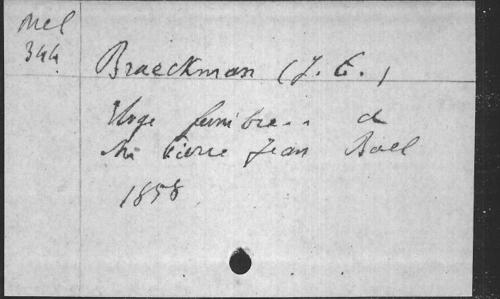 Mel
344
Braeckman (J. E.)
Eloge funèbre.. d
Mr Pierre Jean Bael
1858